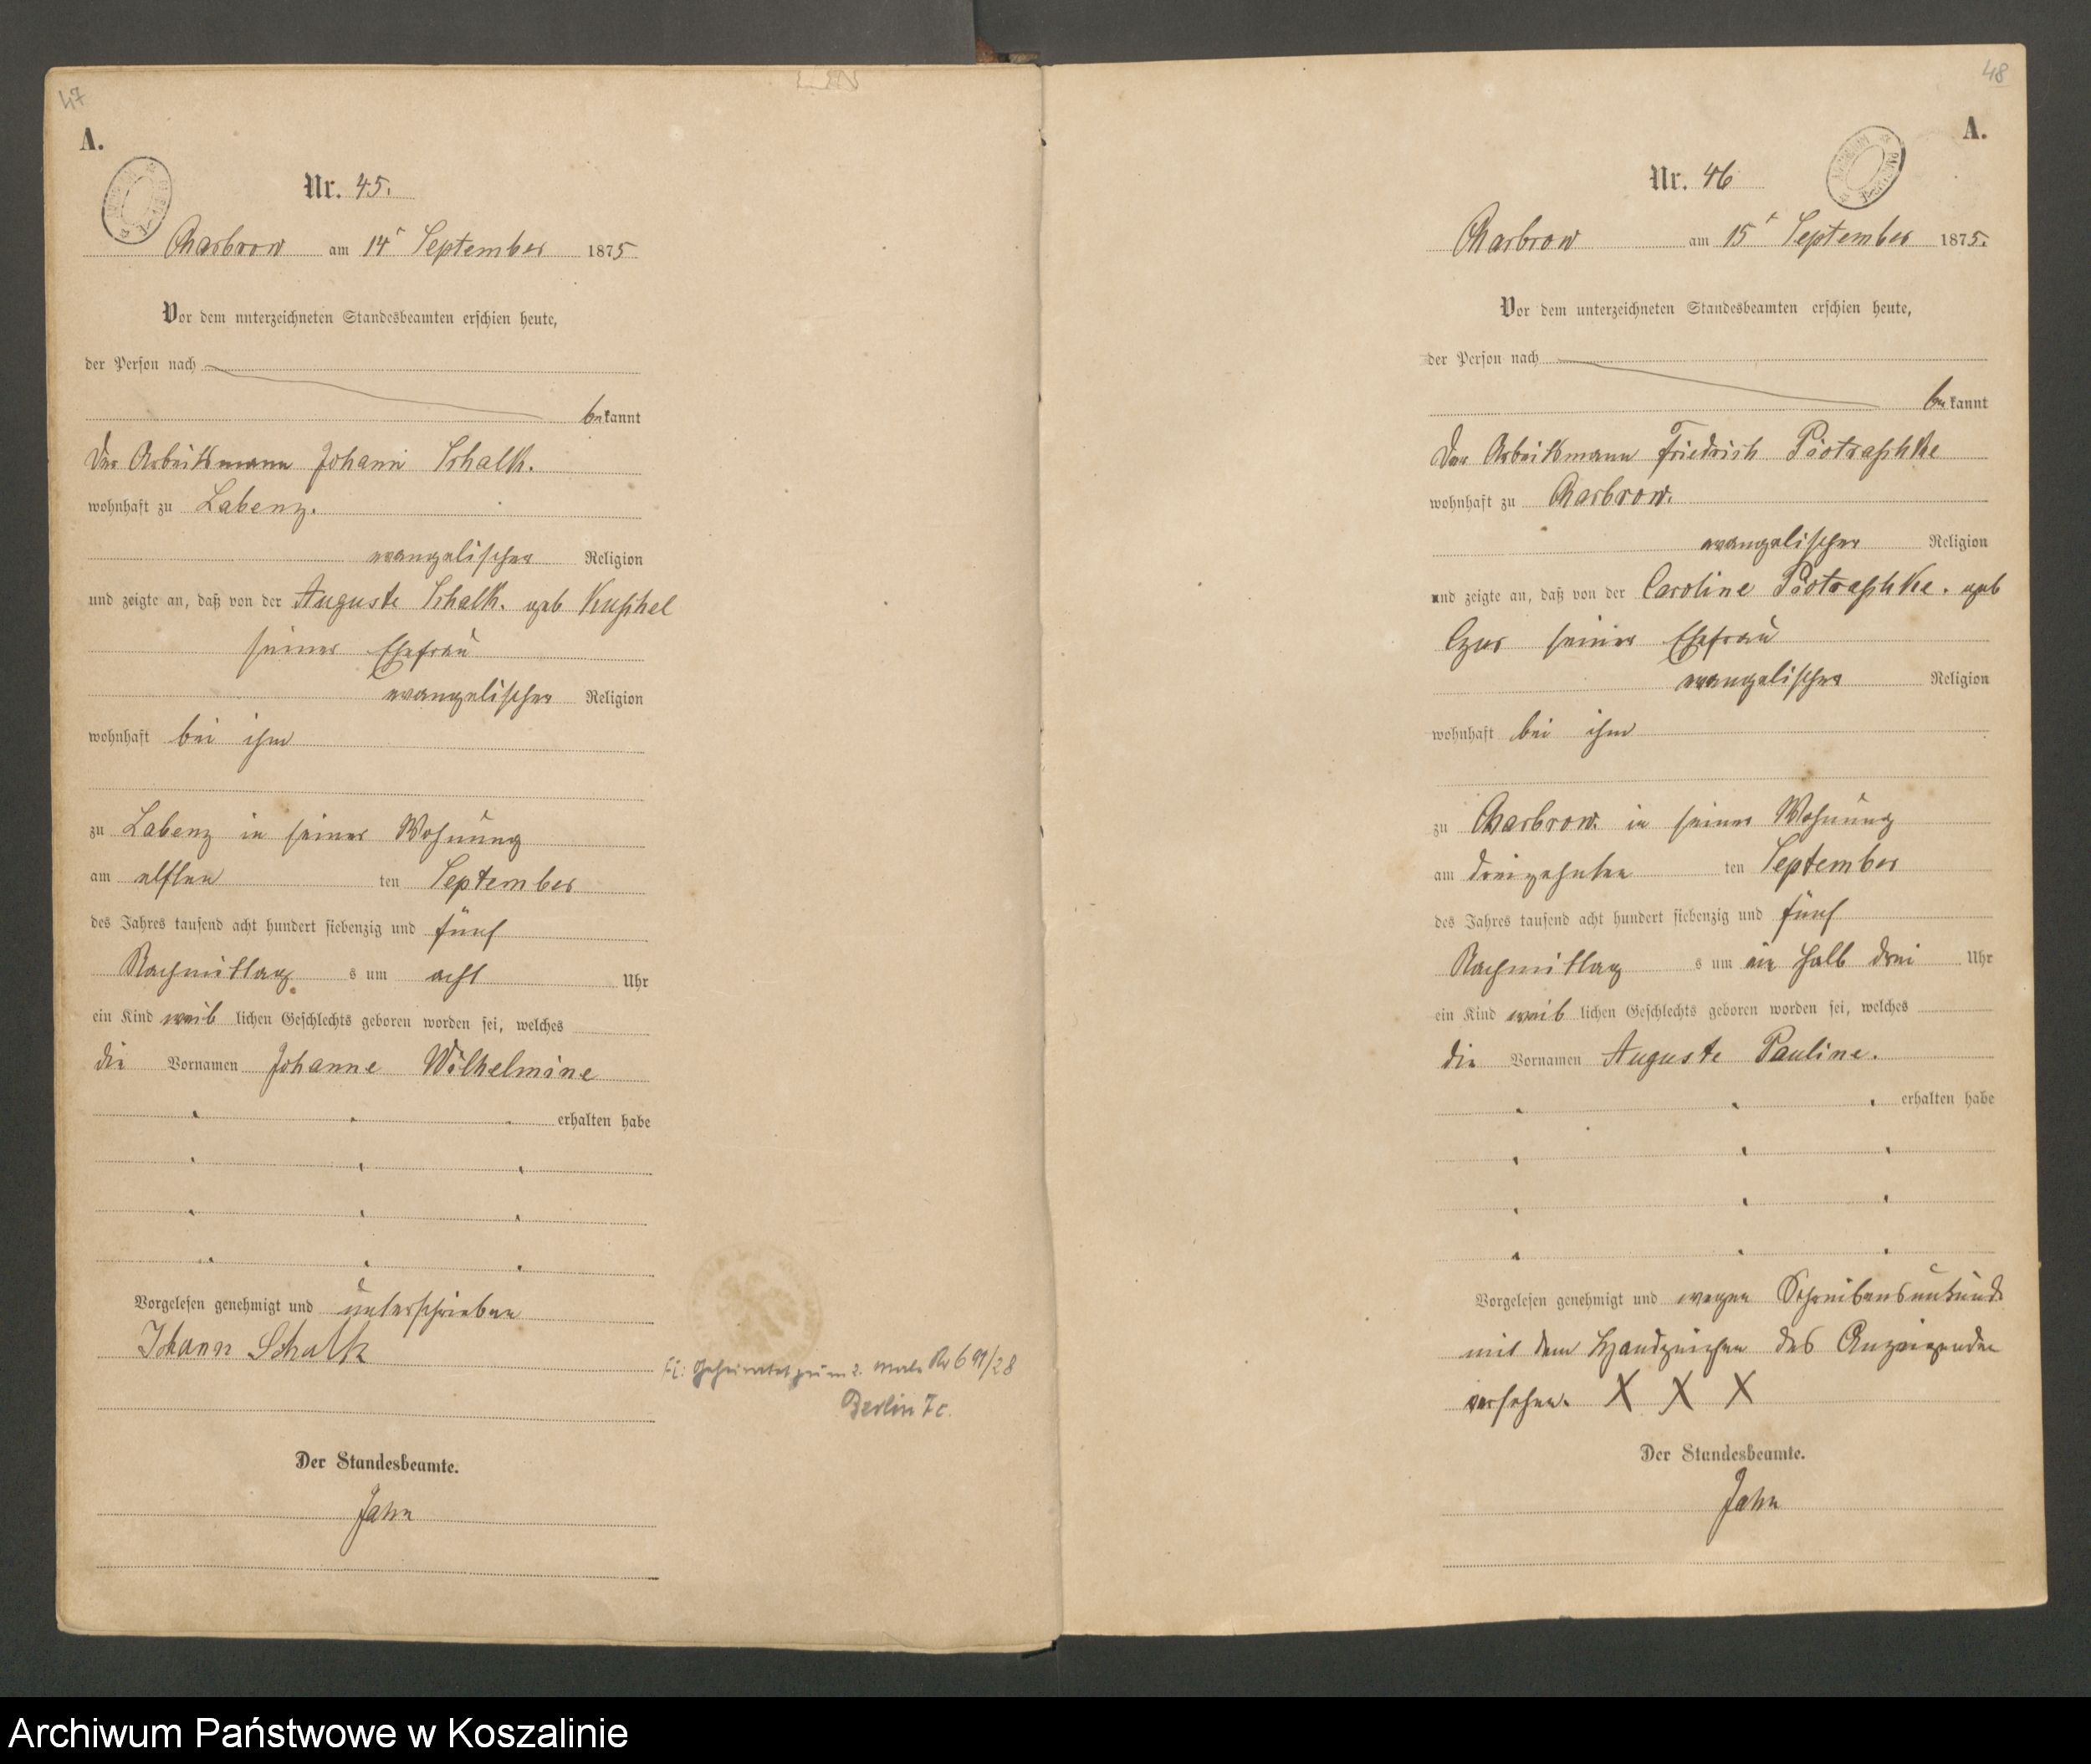 47
A.
Nr. 45.
Charbrow am 14t September 1875
Vor dem unterzeichneten Standesbeamten erschien heute,
der Person nach
bekannt
der Arbeitsmann Johann Schalk.
wohnhaft zu Labenz.
evangelischer Religion
und zeigte an, daß von der Auguste Schalk. geb Kuschel
seiner Ehefrau
evangelischer Religion
wohnhaft bei ihm
zu Labenz in seiner Wohnung
am elften ten September
des Jahres tausend acht hundert siebenzig und fünf
Nachmittag s um acht Uhr
ein Kind weib lichen Geschlechts geboren worden sei, welches
die Vornamen Johanne Wilhelmine
erhalten habe
Vorgelesen genehmigt und unterschrieben
Johann Schalk
geheiratet zum 2. Male Nr 691/28
Berlin 7c.
Der Standesbeamte.
Jahn
48
A.
Nr. 46
Charbrow am 15t September 1875.
Vor dem unterzeichneten Standesbeamten erschien heute,
der Person nach
bekannt
der Arbeitsmann Friedrich Piotraschke
wohnhaft zu Charbrow.
evangelischer Religion
und zeigte an, daß von der Caroline Piotraschke. geb
Czur seiner Ehefrau
evangelischer Religion
wohnhaft bei ihm
zu Charbrow. in seiner Wohnung
am dreizehnten ten September
des Jahres tausend acht hundert siebenzig und fünf
Nachmittag s um ein halb drei Uhr
ein Kind weib lichen Geschlechts geboren worden sei, welches
die Vornamen Auguste Pauline.
erhalten habe
Vorgelesen genehmigt und wegen Schreibensunkunde
mit dem Handzeichen des Anzeigenden
versehen. X X X
Der Standesbeamte.
Jahn
Archiwum Państwowe w Koszalinie